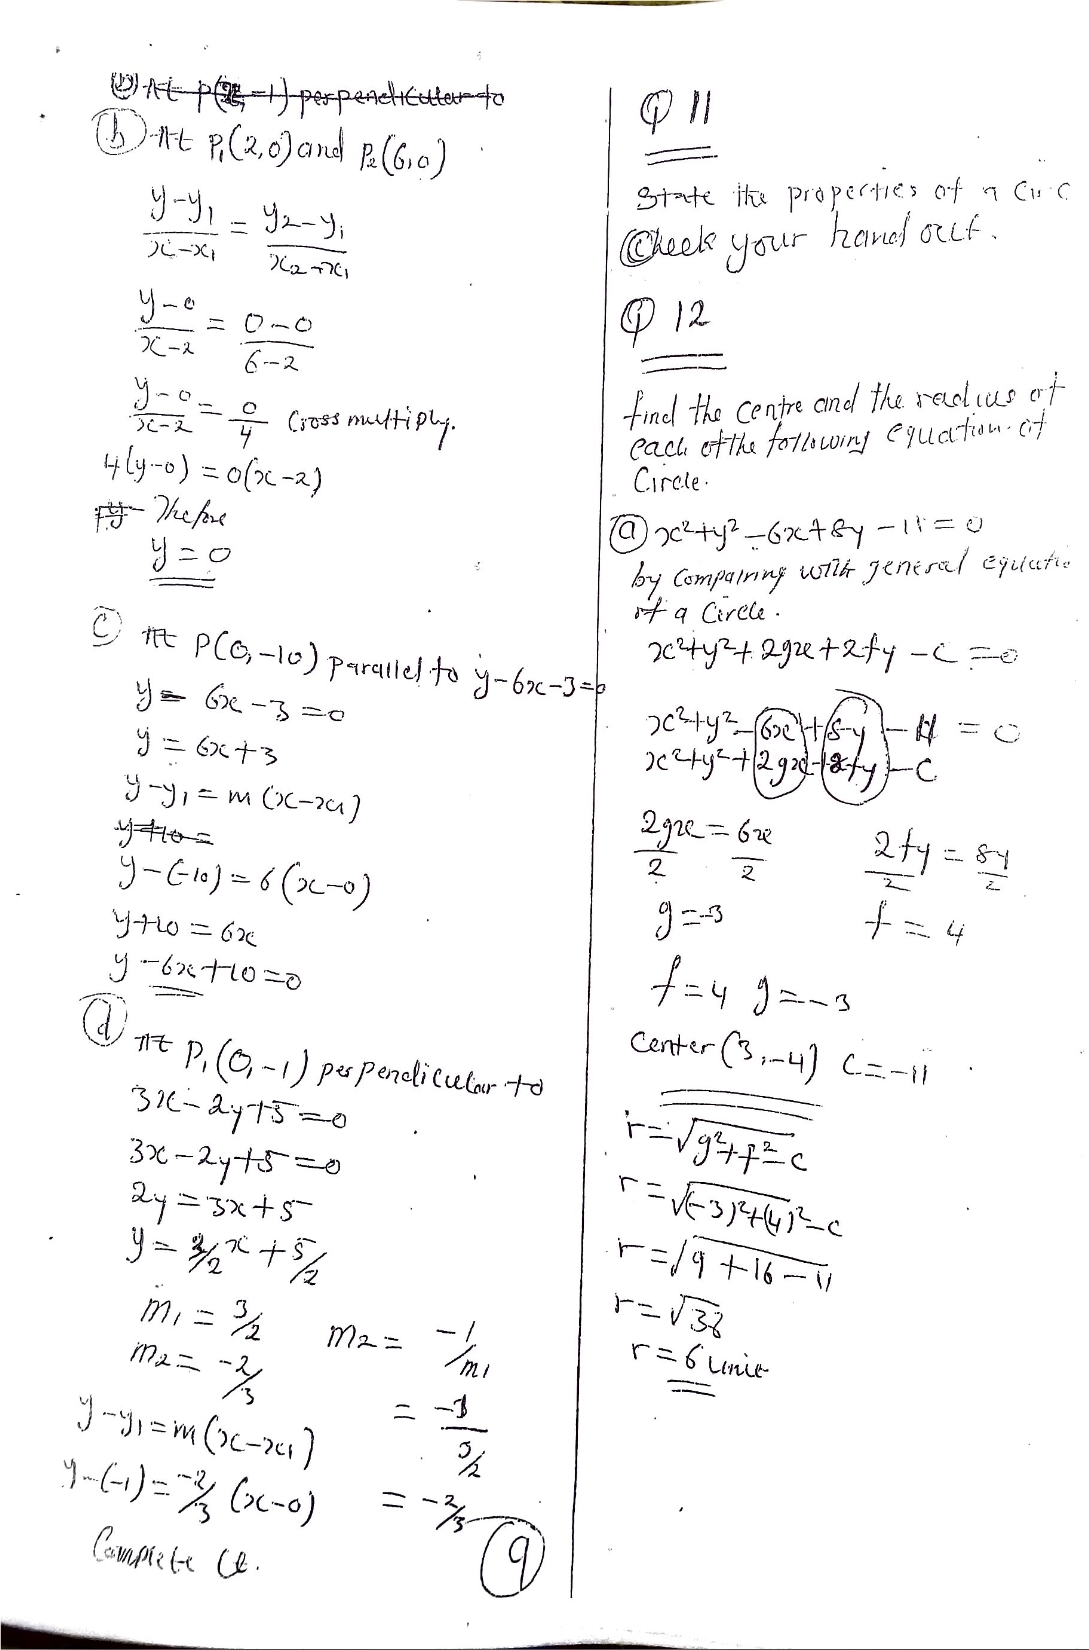 (b) At P(2, -1) perpendicular to
(b) At P₁(2,0) and P₂(6,0)
y-y₁/x-x₁ = y₂-y₁/x₂-x₁
y-0/x-2 = 0-0/6-2
y-0/x-2 = 0/4 Cross multiply.
4(y-0) = 0(x-2)
Thefore
y = 0
(c) At P(0,-10) parallel to y-6x-3=0
y = 6x-3=0
y = 6x+3
y-y₁ = m(x-x₁)
y+10 =
y-(-10) = 6(x-0)
y+10 = 6x
y-6x+10=0
(d) At P₁(0,-1) perpendicular to
3x-2y+5=0
3x-2y+5=0
2y = 3x+5
y = 3/2 x + 5/2
m₁ = 3/2
m₂ = -1/m₁
m₂ = -2/3
= -1/3/2
y-y₁ = m(x-x₁)
y-(-1) = -2/3 (x-0)
= -2/3
Complete it.
9
Q 11
State the properties of a Circ
Check your hand out.
Q 12
find the centre and the radius of
each of the following equation of
Circle.
(a) x²+y²-6x+8y-11=0
by Compairing with general equatio
of a Circle.
x²+y²+2gx+2fy-c=0
x²+y²-6x+8y-11=0
x²+y²+2gx+2fy-c
2gx/2 = 6x/2
2fy/2 = 8y/2
g=-3
f=4
f=4 g=-3
Center (3,-4) C=-11
r=√g²+f²-c
r=√(-3)²+(4)²-c
r=√9+16-11
r=√38
r=6 unit